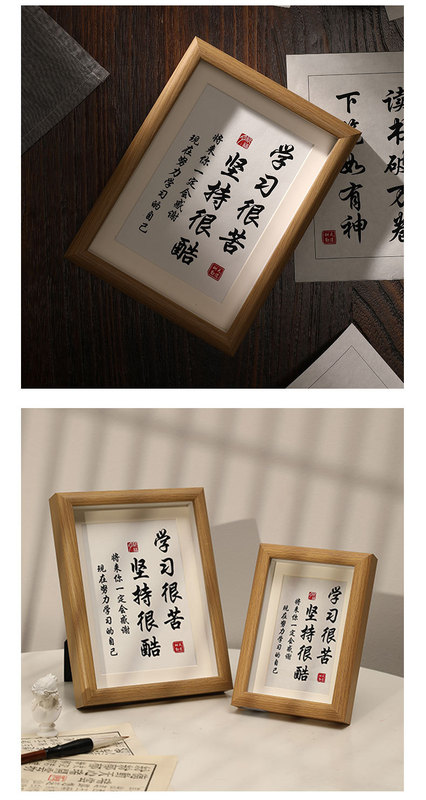 学习很苦
坚持很酷
将来你一定会感谢
现在努力学习的自己
读书破万卷
下笔如有神
学习很苦
坚持很酷
将来你一定会感谢
现在努力学习的自己
学习很苦
坚持很酷
将来你一定会感谢
现在努力学习的自己